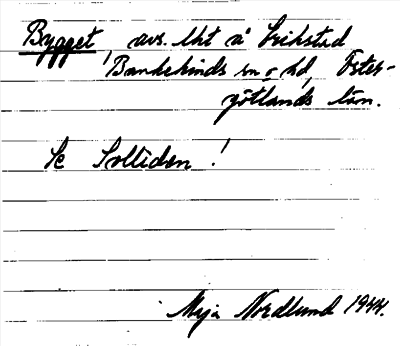 Bygget, avs. lht å Erikstad
Bankekinds sn o. hd, Öster-
götlands län.
Se Solliden!
Maja Nordlund 1944.